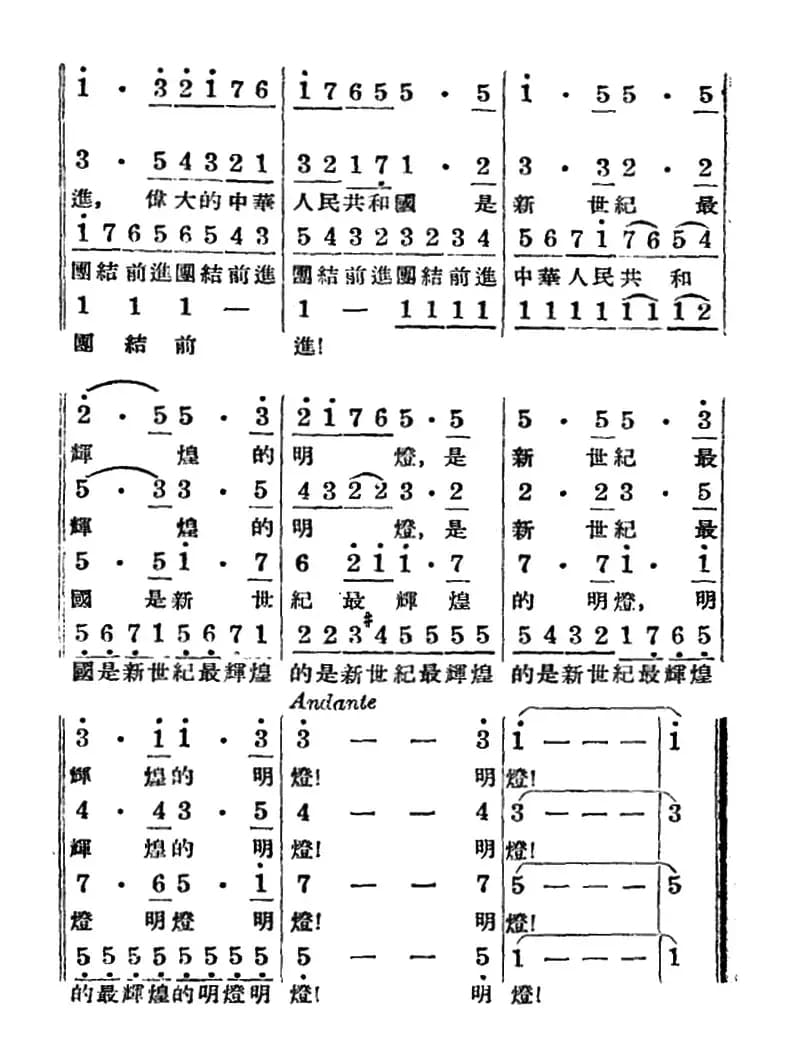 1 · 3 2 1 7 6 1 7 6 5 5 · 5 1 · 5 5 · 5
3 · 5 4 3 2 1 3 2 1 7 1 · 2 3 · 3 2 · 2
進, 偉大的中華 人民共和國 是 新 世紀 最
1 7 6 5 6 5 4 3 5 4 3 2 3 2 3 4 5 6 7 1 7 6 5 4
團結前進團結前進 團結前進團結前進 中華人民共 和
1 1 1 — 1 — 1 1 1 1 1 1 1 1 1 1 1 2
團 結 前 進!
2 · 5 5 · 3 2 1 7 6 5 · 5 5 · 5 5 · 3
輝 煌 的 明 燈, 是 新 世紀 最
5 · 3 3 · 5 4 3 2 2 3 · 2 2 · 2 3 · 5
輝 煌 的 明 燈, 是 新 世紀 最
5 · 5 1 · 7 6 2 1 1 · 7 7 · 7 1 · 1
國 是新 世 紀 最 輝 煌 的 明燈, 明
5 6 7 1 5 6 7 1 2 2 3 #4 5 5 5 5 5 4 3 2 1 7 6 5
國是新世紀最輝煌 的是新世紀最輝煌 的是新世紀最輝煌
Andante
3 · 1 1 · 3 3 — — 3 1 — — — 1
輝 煌的 明 燈! 明 燈!
4 · 4 3 · 5 4 — — 4 3 — — — 3
輝 煌的 明 燈! 明 燈!
7 · 6 5 · 1 7 — — 7 5 — — — 5
燈 明燈 明 燈! 明 燈!
5 5 5 5 5 5 5 5 5 — — 5 1 — — — 1
的最輝煌的明燈明 燈! 明 燈!